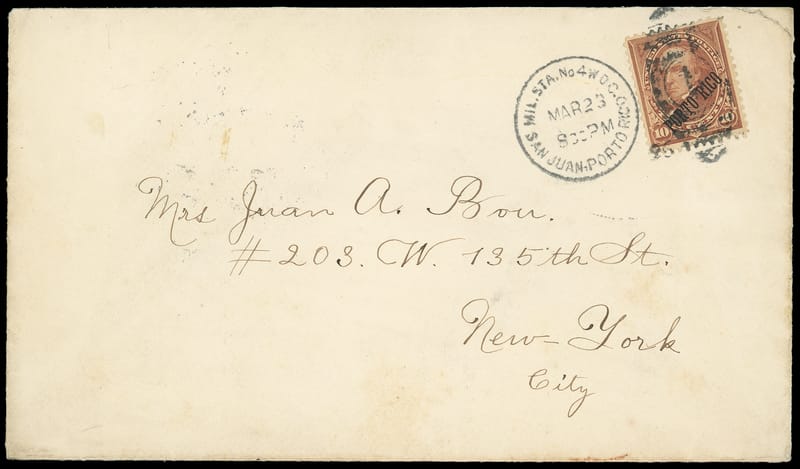 MIL. STA. No 4
MAR 23
8 30 PM
SAN JUAN. PORTO RICO
PORTO RICO
10
Mrs Juan A. Bou.
# 203. W. 135th St.
New-York
City